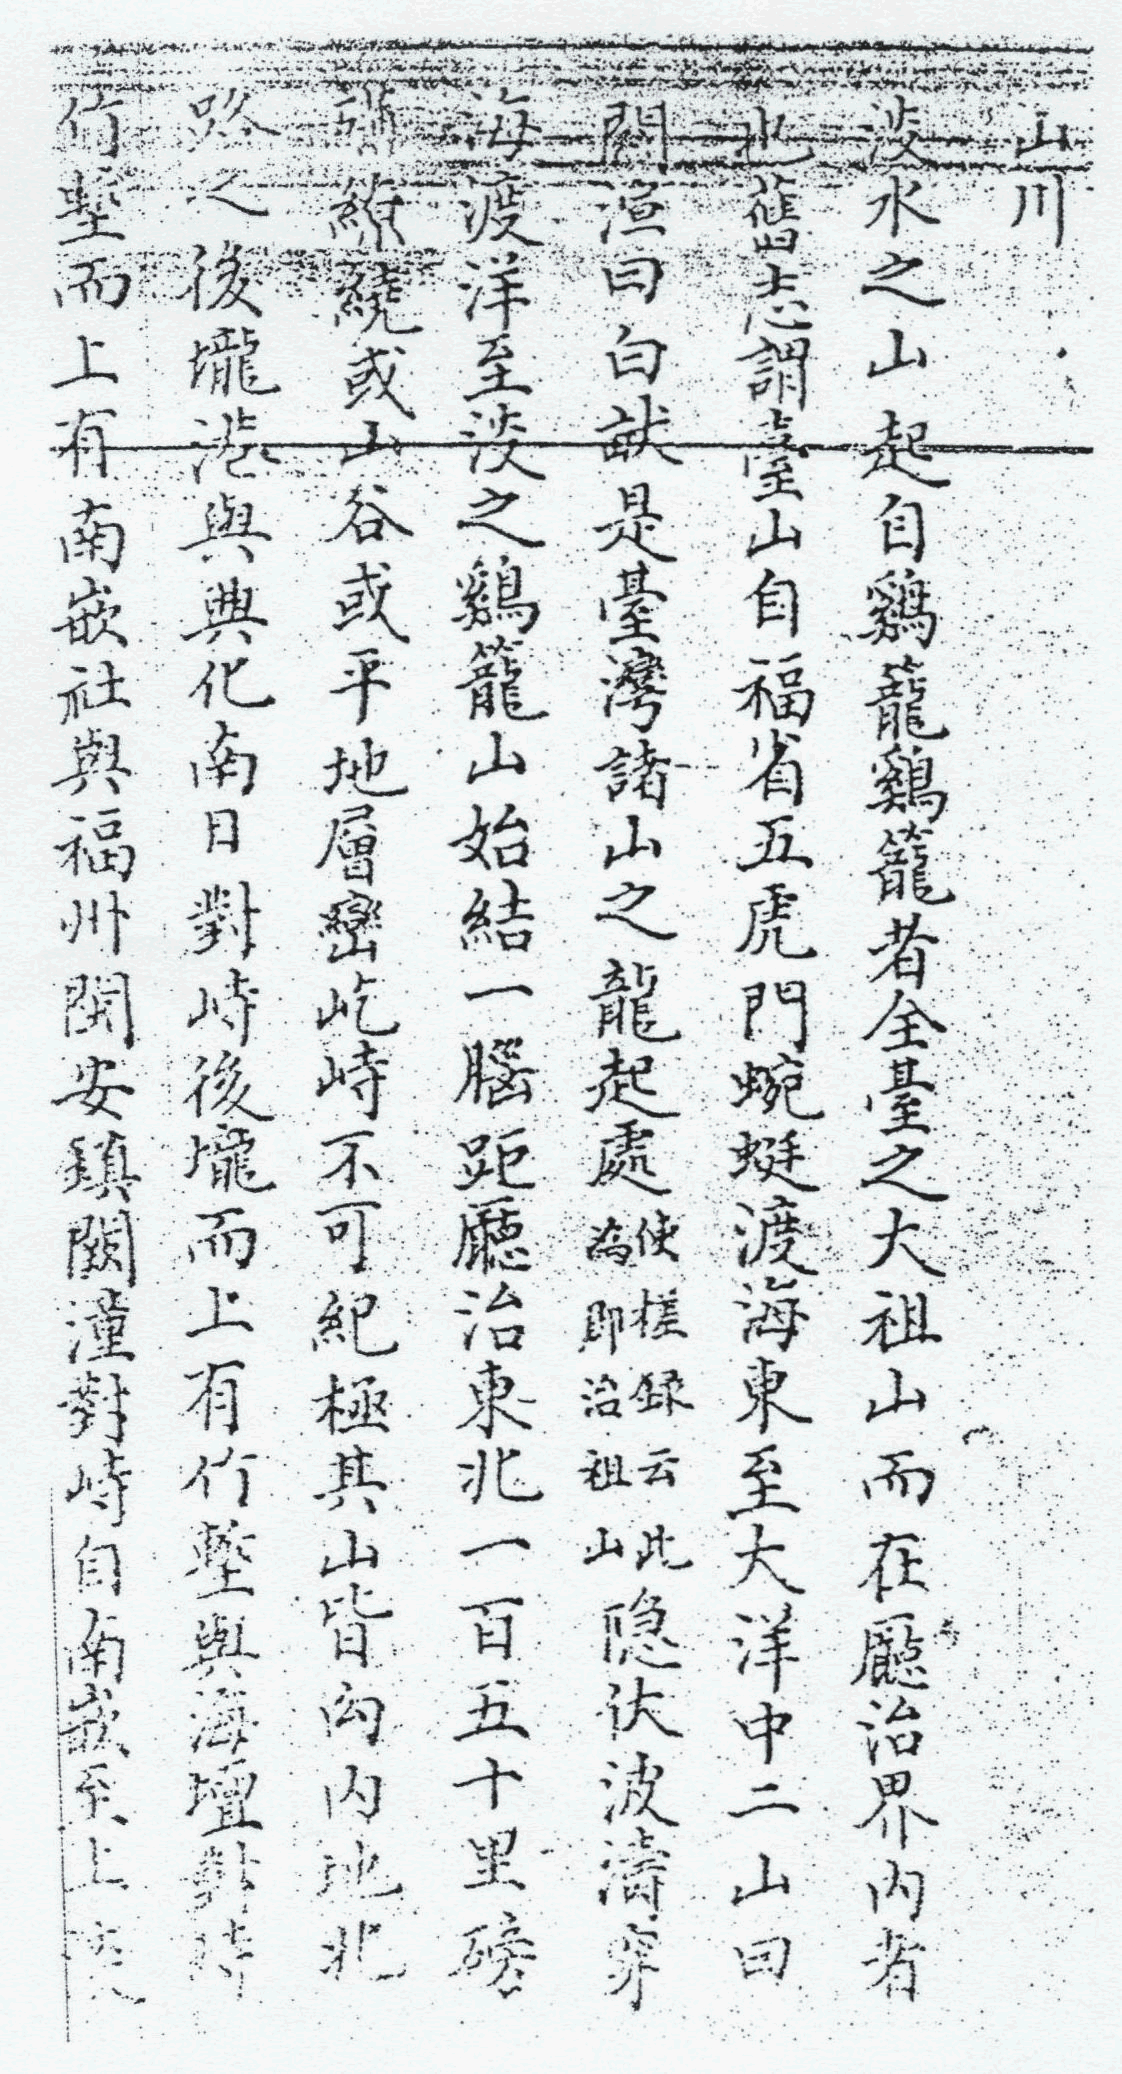 山川
淡水之山起自鷄籠鷄籠者全臺之大祖山而在廳治界內者
北舊志謂臺山自福省五虎門蜿蜒渡海東至大洋中二山曰
關渲曰白畎是臺灣諸山之龍起處使槎錄云此為即治祖山隐伏波濤穿
海渡洋至淡之鷄籠山始結一腦距廳治東北一百五十里磅
礴繞或山谷或平地層巒屹峙不可紀極其山皆向內地北
路之後壠港與興化南日對峙後壠而上有竹塹與海壇對峙
竹塹而上有南嵌社與福州閩安鎮關潼對峙自南嵌至上淡